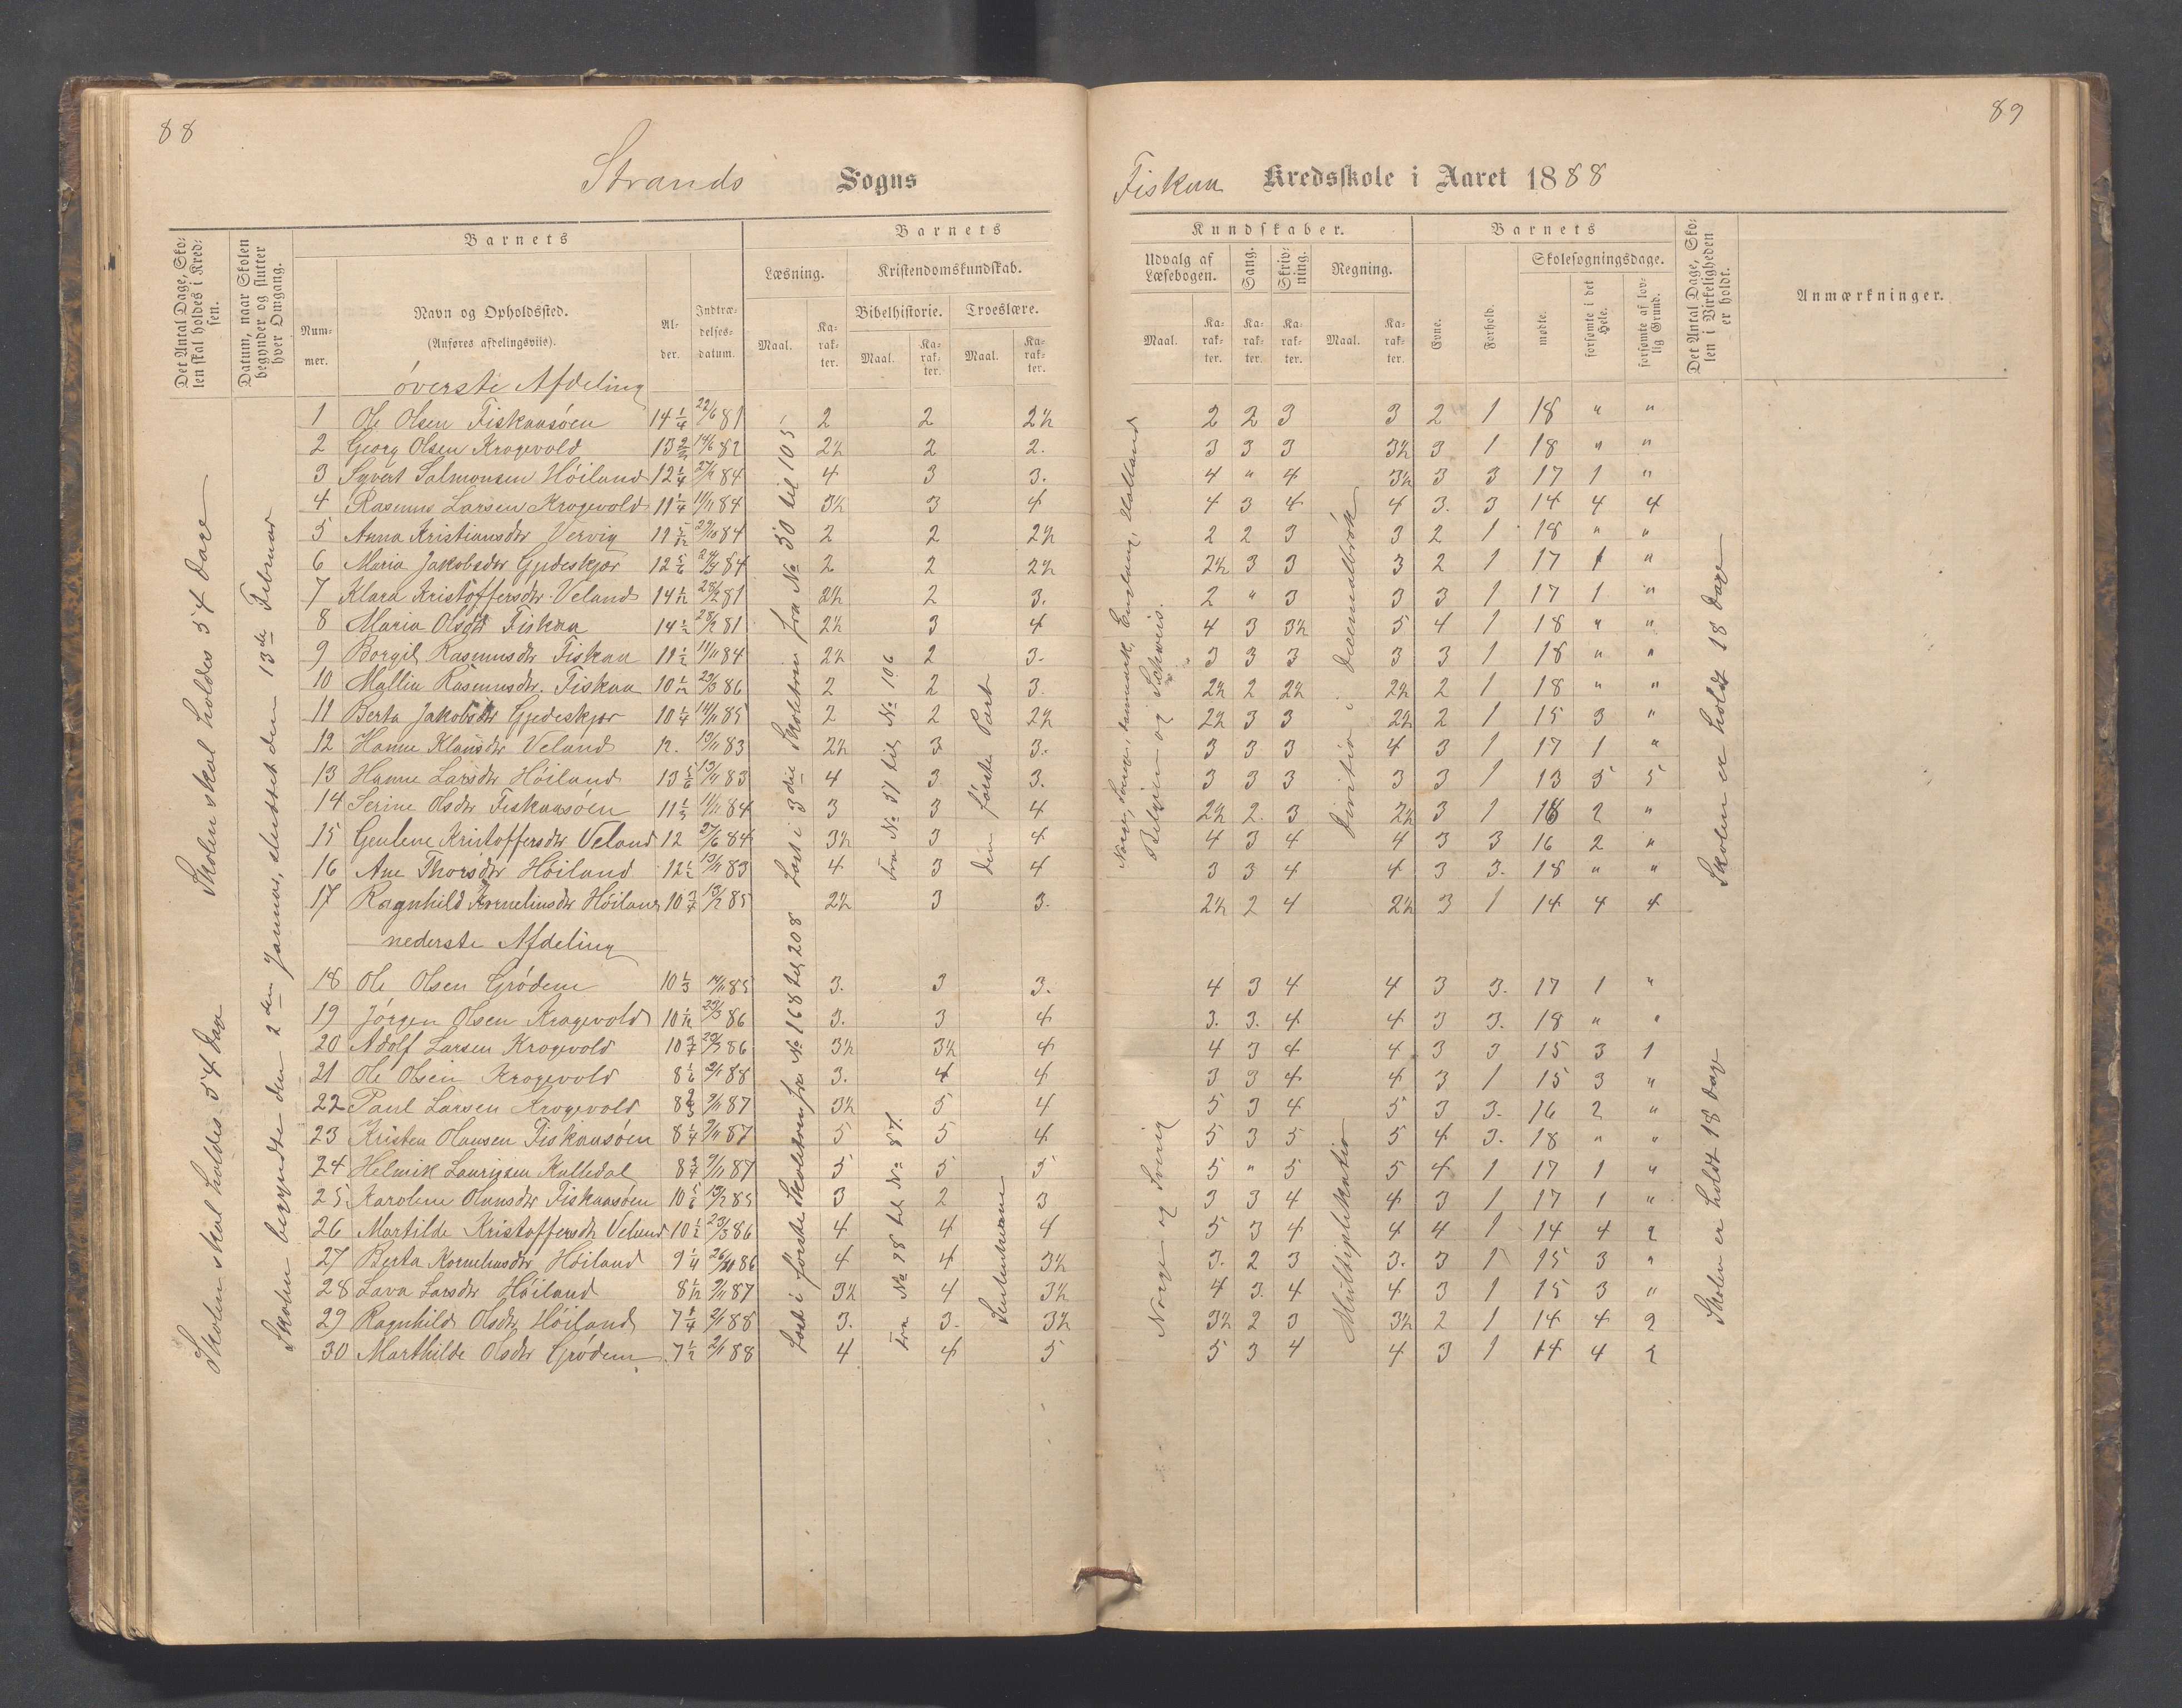 88
89
Strands Sogns
Fiskaa Kredsskole i Aaret 1888
Det Antal Dage, Skolen skal holdes i Kredsen.
Datum, naar Skolen begynder og slutter hver Omgang.
Barnets
Nummer.
Navn og Opholdssted.
(Anføres afdelingsviis).
Alder.
Indtrædelsesdatum.
Barnets
Læsning.
Maal.
Karakter.
Kristendomskundskab.
Bibelhistorie.
Maal.
Karakter.
Troeslære.
Maal.
Karakter.
Kundskaber.
Udvalg af Læsebogen.
Maal.
Karakter.
Sang.
Karakter.
Skrivning.
Karakter.
Regning.
Maal.
Karakter.
Barnets
Evne.
Forhold.
Skolesøgningsdage.
mødte.
forsømte i det Hele.
forsømte af lovlig Grund.
Det Antal Dage, Skolen i Virkeligheden er holdt.
Anmærkninger.
Skolen skal holdes 54 Dage
Skolen skal holdes 54 Dage
Skolen begyndte den 2den Januar, sluttet den 13de Februar
Læst i 3die Skoletrin fra No 50 til 105
Fra No 57 til No 106
Den første Part
Norge, Sverige, Danmark, England, Holland
Belgien og Schweis.
Division i Decimalbrøk
Skolen er holdt 18 Dage
øverste Afdeling
1 Ole Olsen Fiskaasøen 14 1/4 22/6 81 2 2 2½ 2 2 3 3 2 1 18 " "
2 Georg Olsen Krogevold 13 2/3 14/6 82 2½ 2 2. 3 3 3 3½ 3 1 18 " "
3 Syvert Salmonsen Høiland 12 1/4 84 4 3 3. 4 " 4 3½ 3 3 17 1 "
4 Rasmus Larsen Krogevold 11 1/4 11/11 84 3½ 3 4 4 3 4 4 3. 3 14 4 4
5 Anna Kristiansdtr Vervig 84 2 2 2½ 2 2 3 3 2 1 18 " "
6 Maria Jakobsdtr Gjedeskjær 12 5/6 84 2 2 2½ 2½ 3 3 3 2 1 17 1 "
7 Klara Kristoffersdtr Veland 81 2½ 2 3. 2 " 3 3 3 1 17 1 "
8 Maria Olsdtr Fiskaa 81 2½ 3 4 4 3 3½ 5 4 1 18 " "
9 Borgil Rasmusdtr Fiskaa 11 1/2 11/11 84 2½ 2 3. 3 3 3 3 3 1 18 " "
10 Mallin Rasmusdtr. Fiskaa 29/3 86 2 2 3. 2½ 2 2½ 2½ 2 1 18 " "
11 Berta Jakobsdtr Gjedeskjær 10 1/4 14/11 85 2 2 2½ 2½ 3 3 2½ 2 1 15 3 "
12 Hanne Klausdtr Veland 12. 19/11 83 2½ 3 3. 3 3 3 4 3 1 17 1 "
13 Hanne Larsdtr Høiland 13 5/6 19/11 83 4 3 3. 3 3 3 3 3 1 13 5 5
14 Serine Olsdtr Fiskaasøen 84 3 3 4 2½ 2. 3 2½ 3 1 16 2 "
15 Kristoffersdtr Veland 12 27/6 84 3½ 3 4 4 3 4 4 3 3 16 2 "
16 Ane Thorsdtr Høiland 12 1/2 19/11 83 4 3 4 3 3 4 4 3 3. 18 " "
17 Ragnhild Korneliusdtr Høiland 10 3/4 85 2½ 3 3. 2½ 2 4 2½ 3 1 14 4 4
nederste Afdeling
Læst i første Skoletrin fra No 168 til 208
Fra No 28 til No 57.
Norge og Sverig
Multiplikation
Skolen er holdt 18 Dage
18 Ole Olsen Grødem 10 1/3 14/11 85 3. 3 3. 4 3 4 4 3 3. 17 1 "
19 Jørgen Olsen Krogevold 29/3 86 3. 3 4 3. 3. 4 4 3 3. 18 " "
20 Adolf Larsen Krogevold 10 3/4 29/3 86 3½ 3½ 4 4 3 4 4 3 3 15 3 1
21 Ole Olsen Krogevold 8 1/6 2/1 88 3. 4 4 3 3 4 4 3 1 15 3 "
22 Paul Larsen Krogevold 8 2/3 9/11 87 3½ 5 4 5 3 4 5 3 3. 16 2 "
23 Kristen Hansen Fiskaasøen 8 1/4 9/11 87 5 5 4 5 3 5 5 4 3. 18 " "
24 Helmik Kalledal 8 3/4 9/11 87 5 5 5 5 " 5 5 4 1 17 1 "
25 Karoline Olausdtr Fiskaasøen 10 5/6 85 3 2 3 3 3 4 4 3 1 17 1 "
26 Martilde Kristoffersdtr Veland 10 1/2 29/3 86 4 4 4 5 3 4 4 4 1 14 4 2
27 Berta Kornelinsdtr Høiland 9 1/4 86 4 4 3½ 3. 2 3 3. 3 1 15 3 "
28 Lava Larsdtr Høiland 9/11 87 3½ 4 3½ 4 3. 4 4 3 1 15 3 "
29 Ragnhild Olsdtr Høiland 7 1/4 2/1 88 3. 3. 3½ 3½ 2 3 3½ 2 1 14 4 2
30 Marthilde Olsdtr Grødem 7 1/2 2/1 88 4 4 5 5 3 4 4 3 1 14 4 2